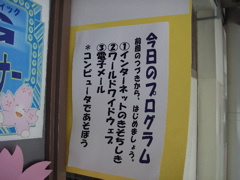 今日のプログラム
前回のつづきから、はじめましょう。
①インターネットのきそちしき
②ワールドワイドウェブ
③電子メール
＊コンピュータであそぼう